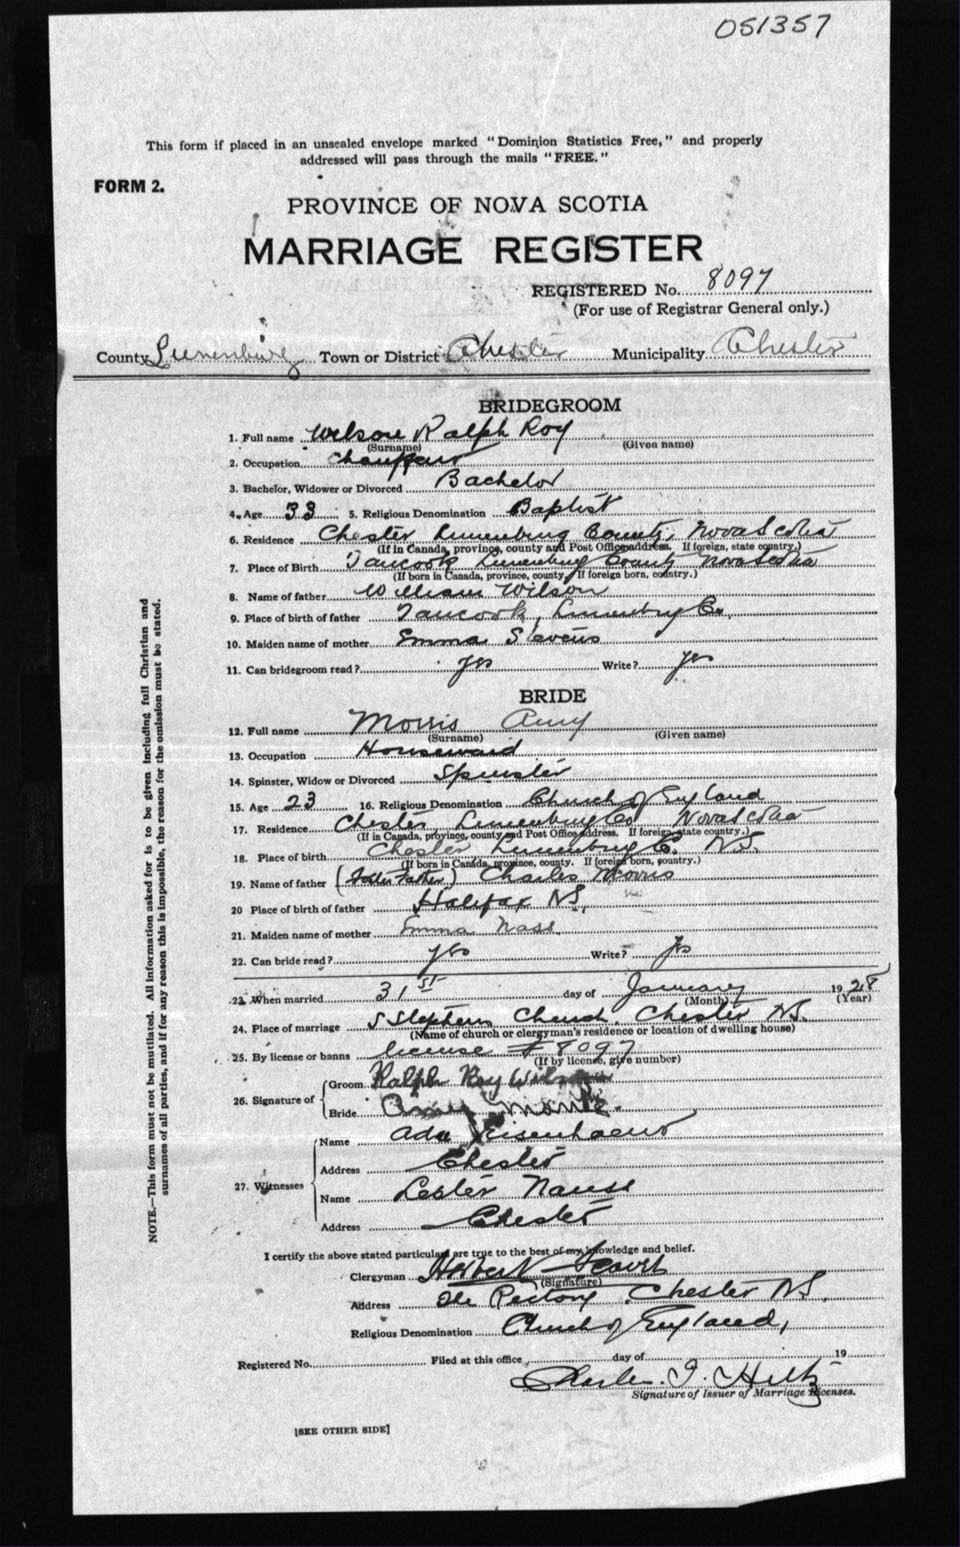 051357
This form if placed in an unsealed envelope marked "Dominion Statistics Free," and properly
addressed will pass through the mails "FREE."
FORM 2.
PROVINCE OF NOVA SCOTIA
MARRIAGE REGISTER
REGISTERED No. 8097
(For use of Registrar General only.)
County Lunenburg Town or District Chester Municipality Chester
BRIDEGROOM
1. Full name Wilson Ralph Roy
(Surname) (Given name)
2. Occupation Chauffeur
3. Bachelor, Widower or Divorced Bachelor
4. Age 33 5. Religious Denomination Baptist
6. Residence Chester Lunenburg County, Nova Scotia
(If in Canada, province, county and Post Office address. If foreign, state country.)
7. Place of Birth Tancook Lunenburg County Nova Scotia
(If born in Canada, province, county, If foreign born, country.)
8. Name of father William Wilson
9. Place of birth of father Tancook, Lunenburg Co.
10. Maiden name of mother Emma Stevens
11. Can bridegroom read? yes Write? yes
BRIDE
12. Full name Morris Amy
(Surname) (Given name)
13. Occupation Housemaid
14. Spinster, Widow or Divorced Spinster
15. Age 23 16. Religious Denomination Church of England
17. Residence Chester Lunenburg Co Nova Scotia
(If in Canada, province, county and Post Office address. If foreign, state country.)
18. Place of birth Chester Lunenburg C. N.S.
(If born in Canada, province, county. If foreign born, country.)
19. Name of father (Foster Father) Charles Morris
20 Place of birth of father Halifax N.S.
21. Maiden name of mother Emma Nass
22. Can bride read? yes Write? yes
23. When married 31st day of January 1928
(Month) (Year)
24. Place of marriage S Stephens Church, Chester N.S.
(Name of church or clergyman's residence or location of dwelling house)
25. By license or banns license # 8097
(If by license, give number)
26. Signature of
Groom Ralph Roy Wilson
Bride Amy
27. Witnesses
Name Ada Eisenhauer
Address Chester
Name Lester Nauss
Address Chester
I certify the above stated particulars are true to the best of my knowledge and belief.
Clergyman Herbert
(Signature)
Address The Rectory Chester N.S.
Religious Denomination Church of England,
Registered No. Filed at this office day of 19
Charles. I. Hiltz
Signature of Issuer of Marriage Licenses.
[SEE OTHER SIDE]
NOTE.—This form must not be mutilated. All information asked for is to be given including full Christian and
surnames of all parties, and if for any reason this is impossible, the reason for the omission must be stated.